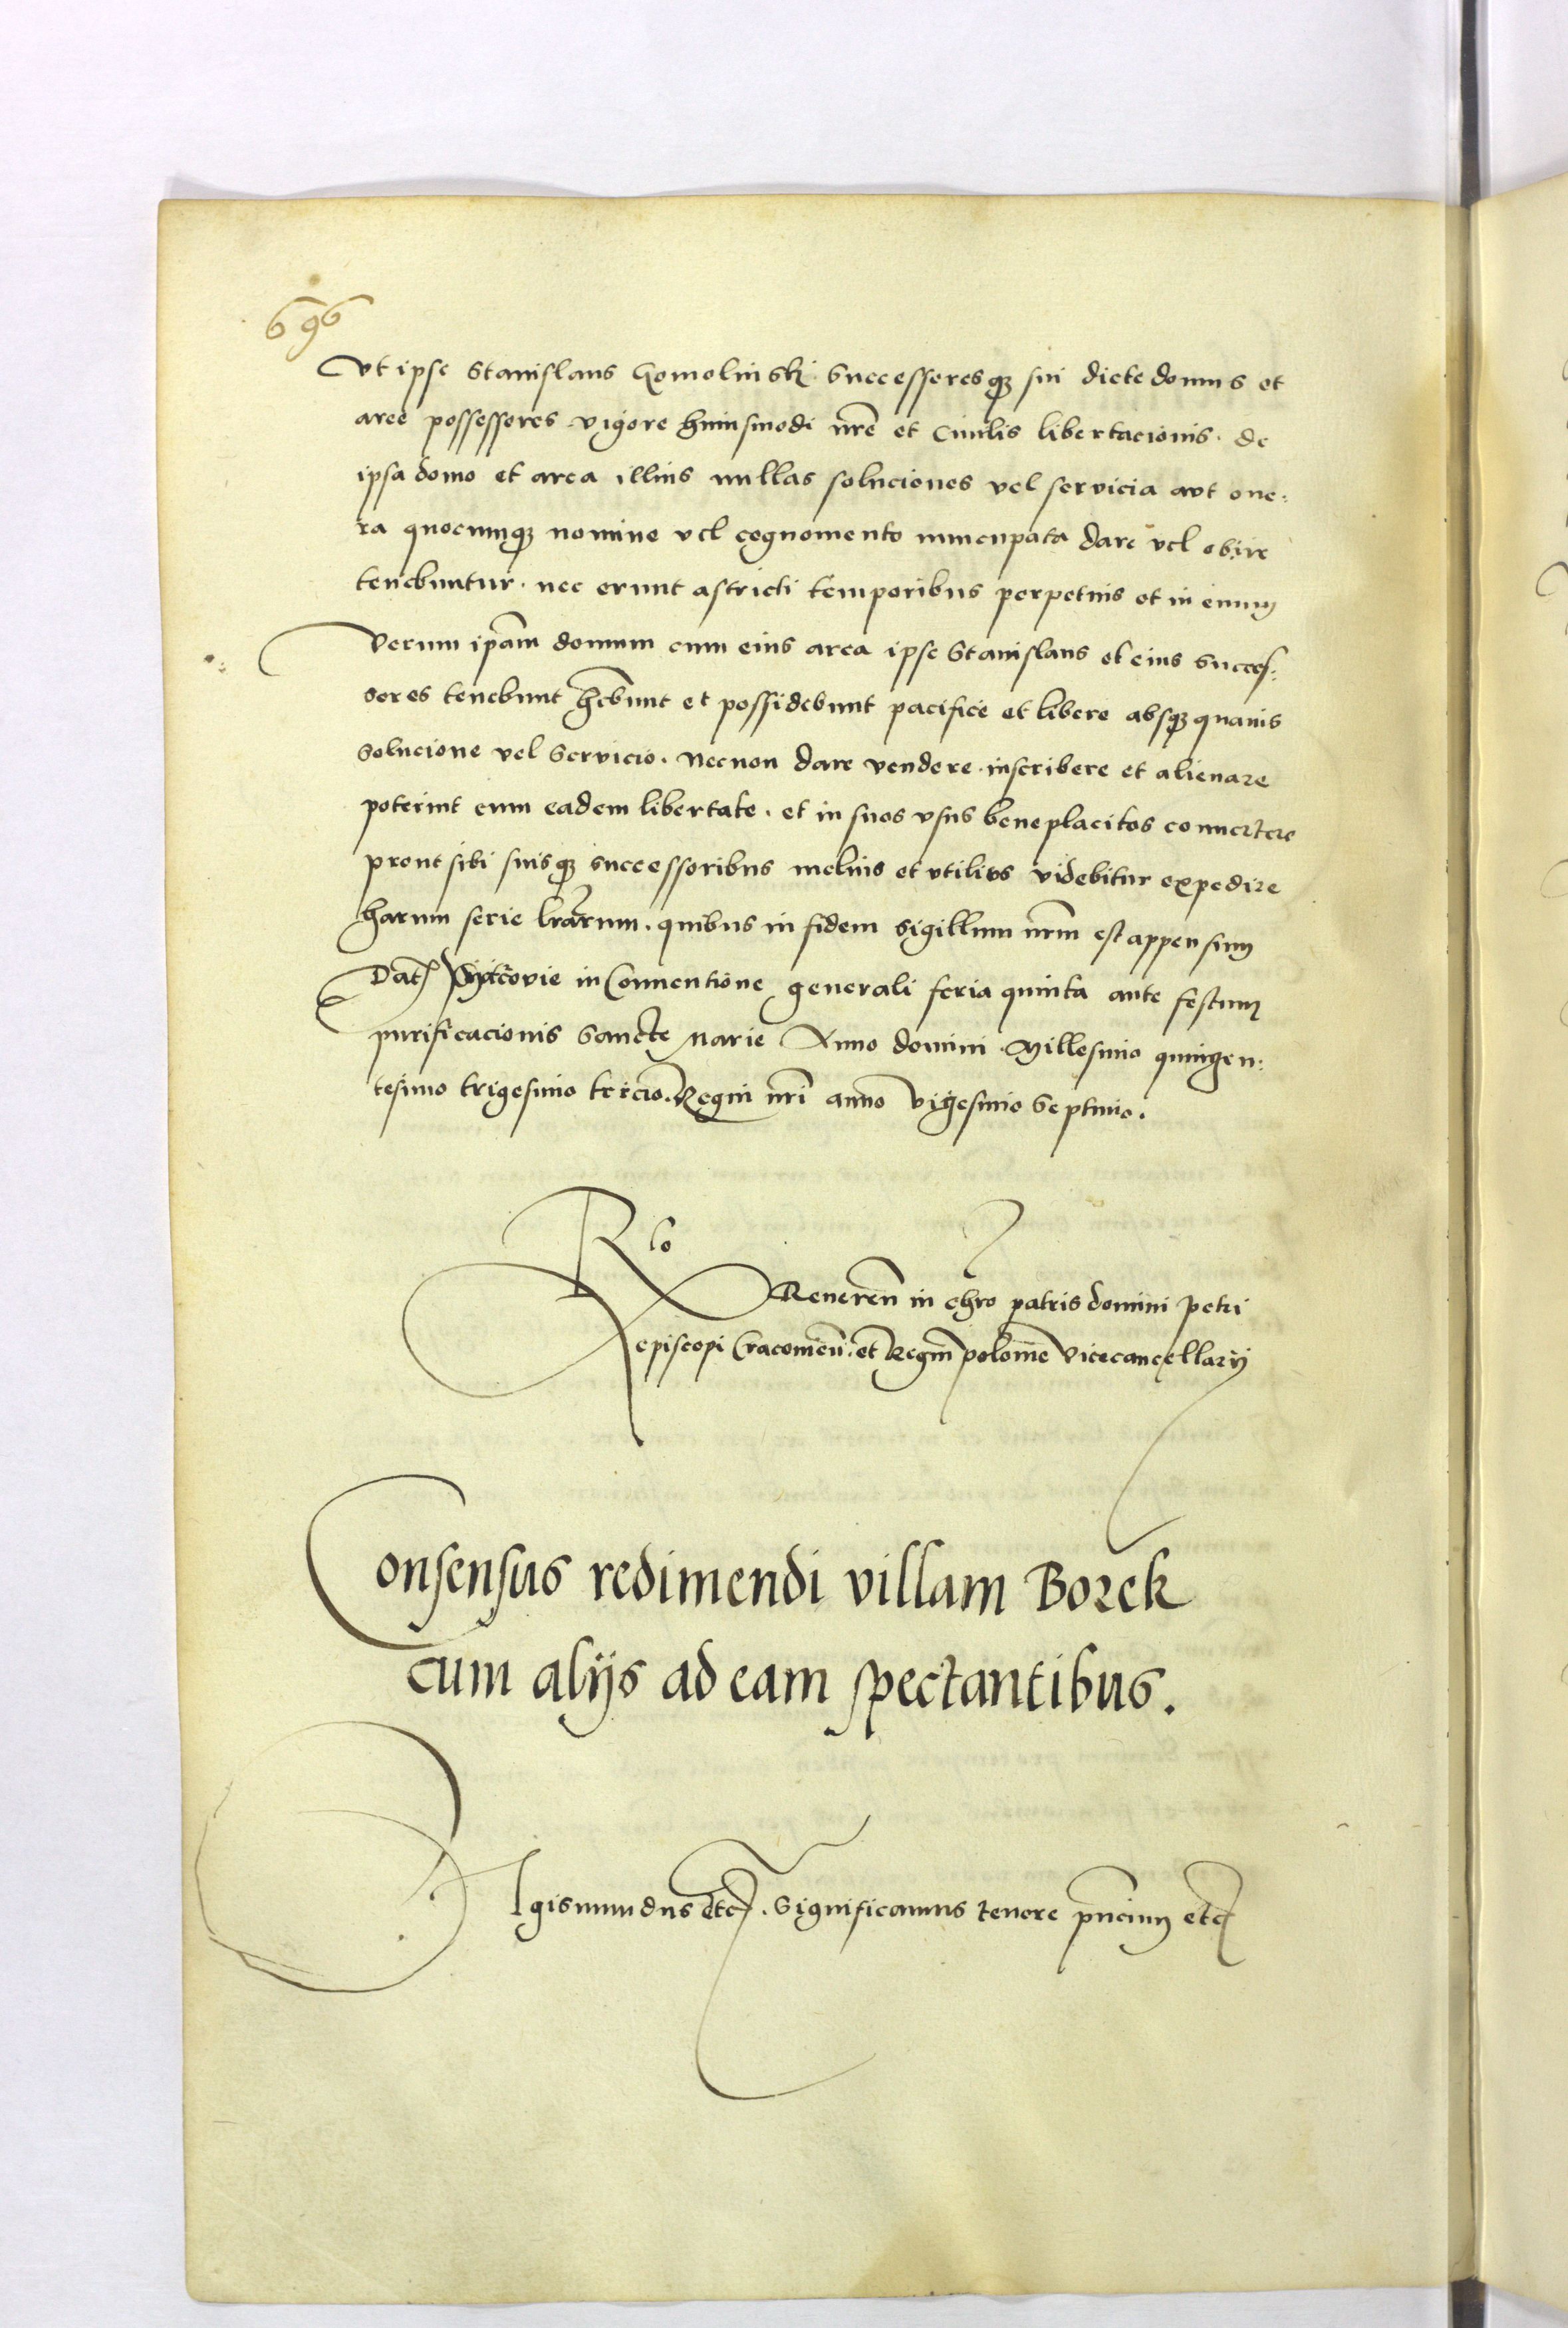 696
Vt ipse Stanislaus Gomolinski Successoresq₃ sui dicte domus et
aree possessores vigore huiusmodi nr̄e et Ciuilis libertacionis. de
ipsa domo et area illius nullas soluciones vel servicia aut one:
ra quocumq₃ nomine vel cognomento nuncupata dare vel obire
tenebuntur. nec erunt astricti temporibus perpetuis et in euum
Verum ip̄am domum cum eius area ipse Stanislaus et eius Succes:
sores tenebunt hēbunt et possidebunt pacifice et libere absq₃ quauis
Solucione vel Servicio. Necnon dare vendere inscribere et alienare
poterint cum eadem libertate. et in suos vsus beneplacitos conuertere
prout sibi suisq₃ successoribus melius et vtilius videbitur expedire
harum serie lrārum. quibus in fidem Sigillum nrm̄ est appensum
Dat Piotrcovie in Conuentione generali feria quinta ante festum
purificacionis Sancte Marie Anno domini Millesimo quingen:
tesimo trigesimo tercio. Regni nrī anno Vigesimo Septimo.
R̄lo
Reueren̄ in chr̄o patris domini Petri
episcopi Cracouien̄. et Regni polonie Vicecancellarij
Consensus redimendi villam Borek
cum alijs ad eam spectantibus.
Sigismundus etc. Significamus tenore pn̄cium etc